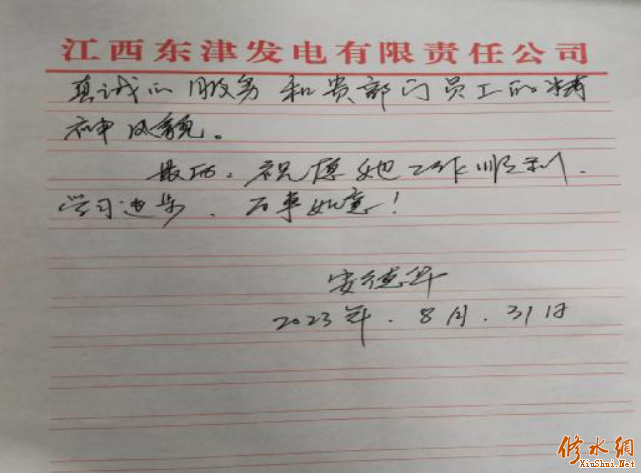 江西东津发电有限责任公司
真诚的服务和贵部门员工的精
神风貌。
最后，祝愿她工作顺利，
学习进步，万事如意！
安德华
2023年.8月.31日
修水网
XiuShui.Net